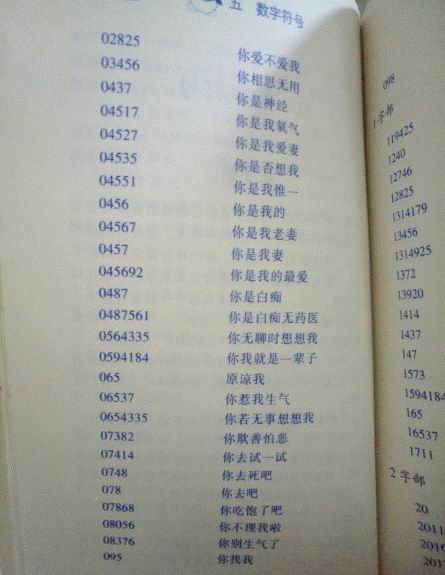 五 数字符号
02825 你爱不爱我
03456 你相思无用
0437 你是神经
04517 你是我氧气
04527 你是我爱妻
04535 你是否想我
04551 你是我推一
0456 你是我的
04567 你是我老妻
0457 你是我妻
045692 你是我的最爱
0487 你是白痴
0487561 你是白痴无药医
0564335 你无聊时想想我
0594184 你我就是一辈子
065 原谅我
06537 你惹我生气
0654335 你若无事想想我
07382 你欺善怕恶
07414 你去试一试
0748 你去死吧
078 你去吧
07868 你吃饱了吧
08056 你不理我啦
08376 你别生气了
095 你找我
098
1字部
119425
1240
12746
12825
1314179
13456
1314925
1372
13920
1414
1437
147
1573
1594184
165
16537
1711
2字部
20